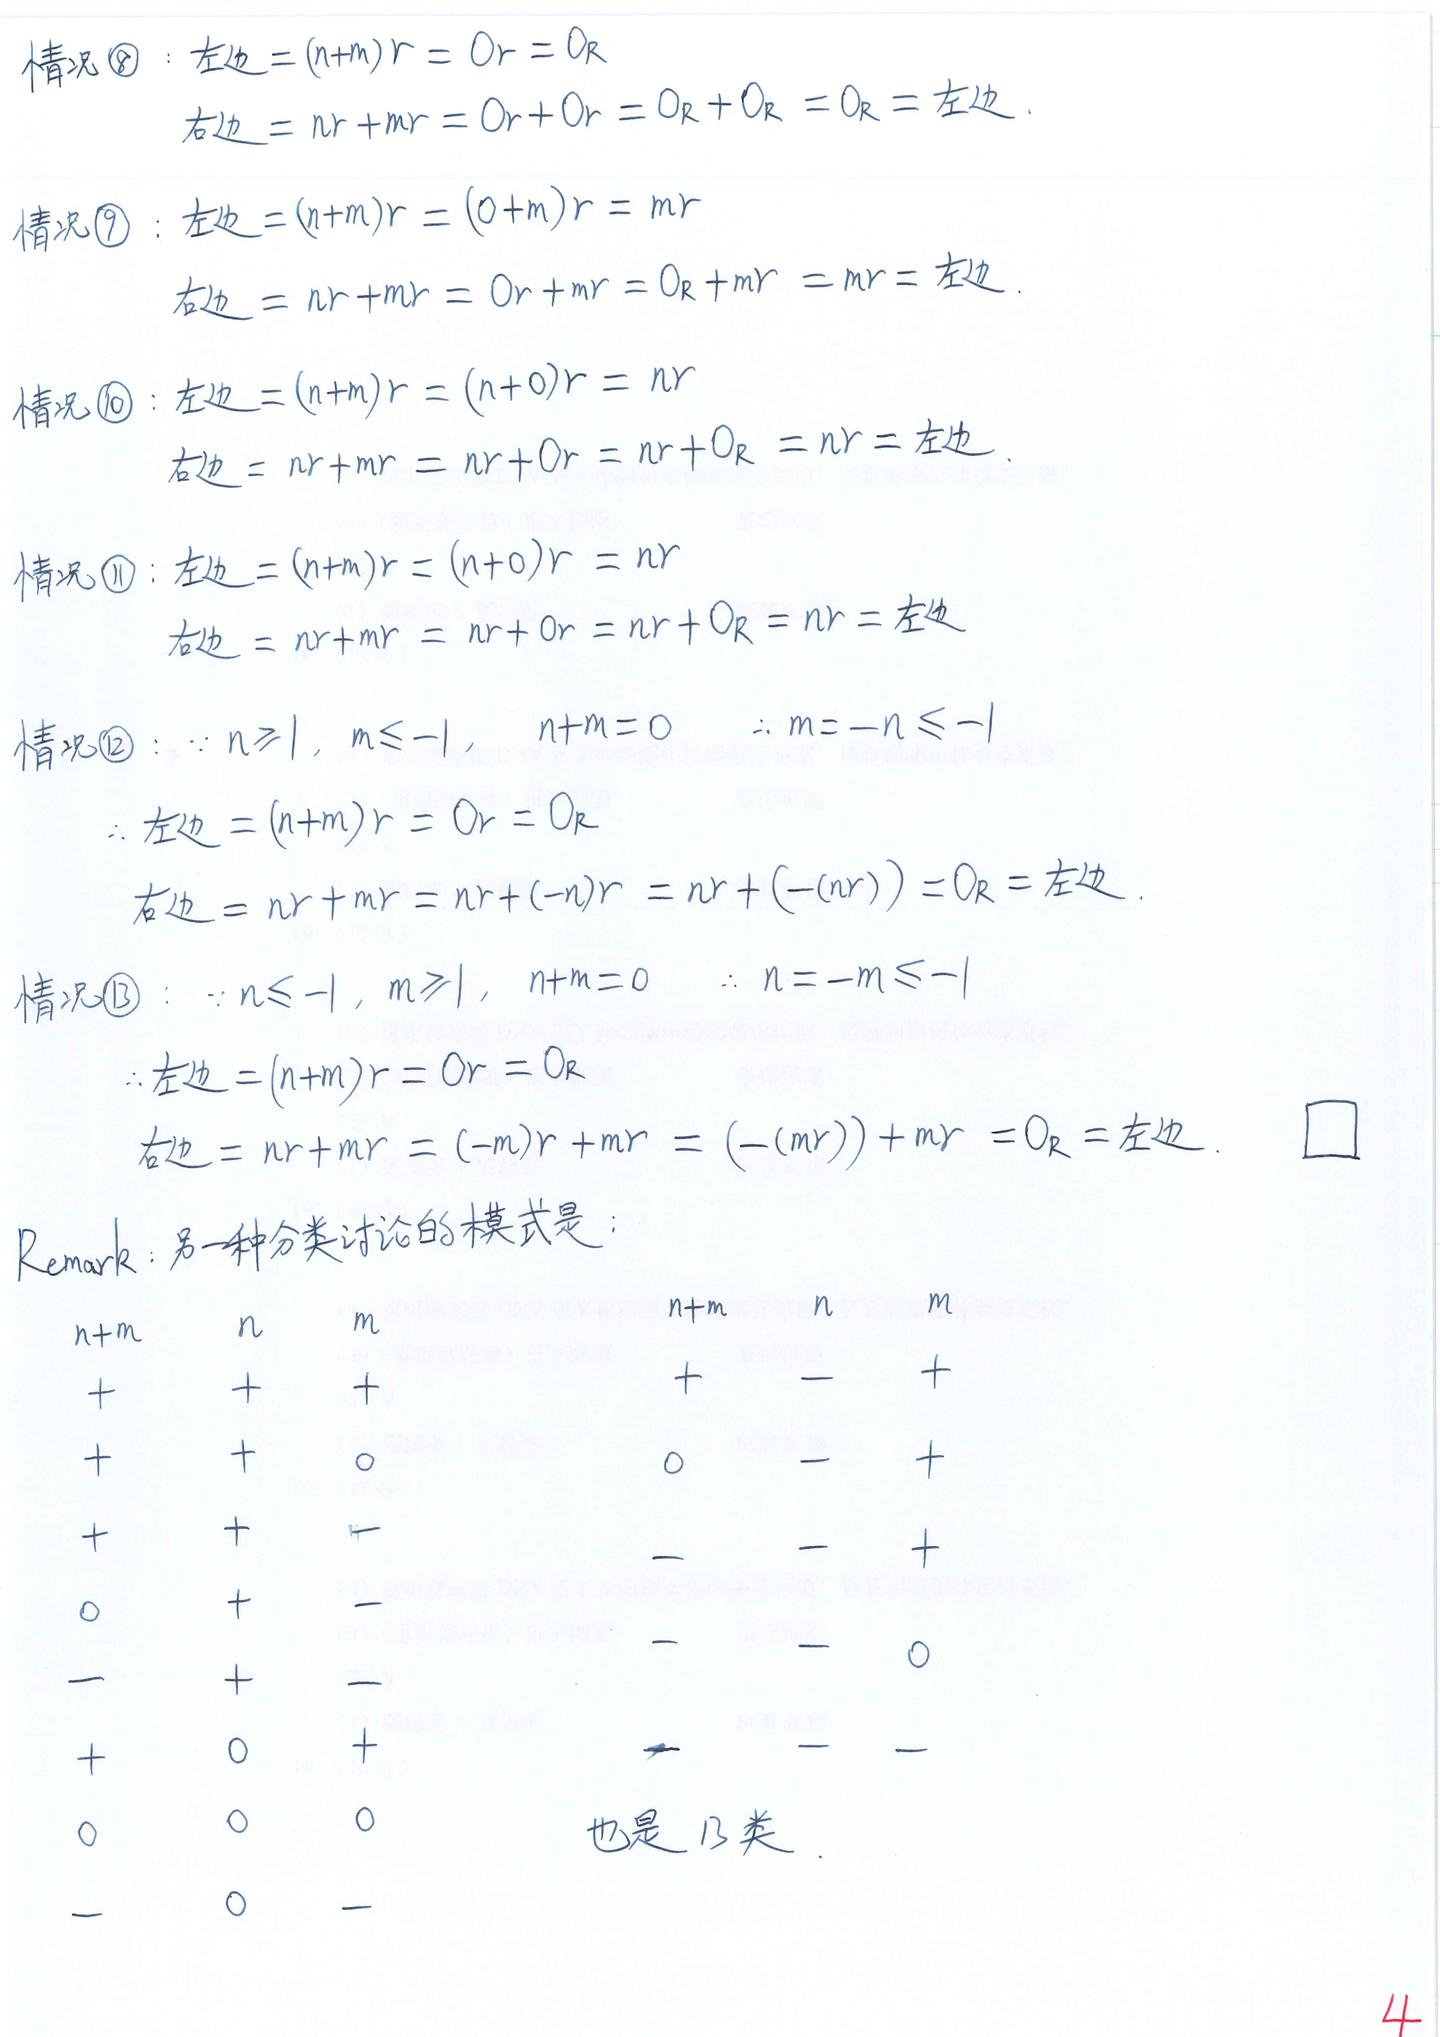 情况⑧：左边 = (n+m)r = 0r = 0_R
右边 = nr+mr = 0r+0r = 0_R+0_R = 0_R = 左边.
情况⑨：左边 = (n+m)r = (0+m)r = mr
右边 = nr+mr = 0r+mr = 0_R+mr = mr = 左边.
情况⑩：左边 = (n+m)r = (n+0)r = nr
右边 = nr+mr = nr+0r = nr+0_R = nr = 左边.
情况⑪：左边 = (n+m)r = (n+0)r = nr
右边 = nr+mr = nr+0r = nr+0_R = nr = 左边
情况⑫：∵ n≥1, m≤-1, n+m=0 ∴ m=-n≤-1
∴ 左边 = (n+m)r = 0r = 0_R
右边 = nr+mr = nr+(-n)r = nr+(-(nr)) = 0_R = 左边.
情况⑬：∵ n≤-1, m≥1, n+m=0 ∴ n=-m≤-1
∴ 左边 = (n+m)r = 0r = 0_R
右边 = nr+mr = (-m)r+mr = (-(mr))+mr = 0_R = 左边. □
Remark：另一种分类讨论的模式是：
n+m n m n+m n m
+ + + + - +
+ + 0 0 - +
+ + - - - +
0 + - - - 0
- + -
+ 0 + - - -
0 0 0 也是13类.
- 0 -
4